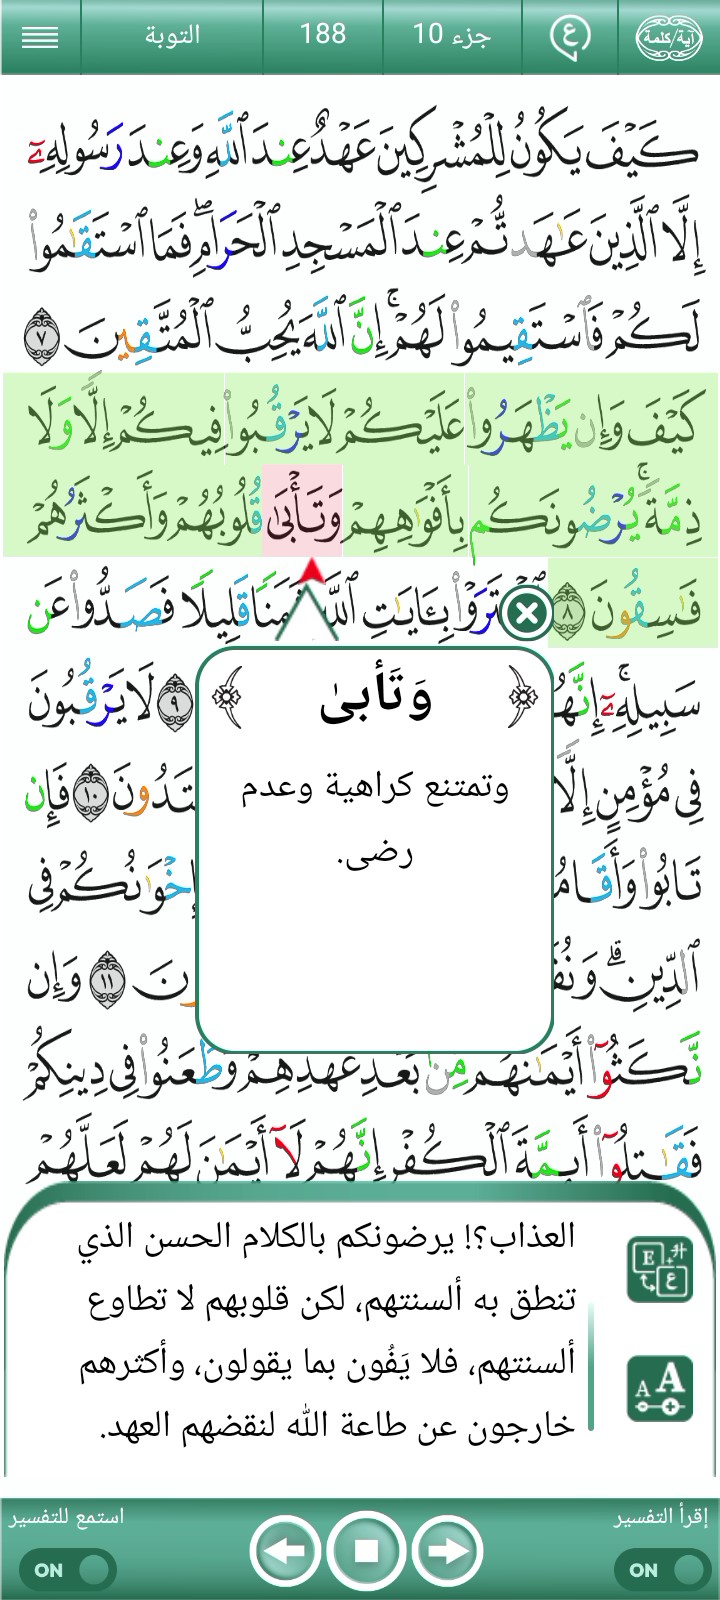 آية/كلمة ع جزء 10 188 التوبة
كَيْفَ يَكُونُ لِلْمُشْرِكِينَ عَهْدٌ عِندَ ٱللَّهِ وَعِندَ رَسُولِهِۦٓ
إِلَّا ٱلَّذِينَ عَٰهَدتُّمْ عِندَ ٱلْمَسْجِدِ ٱلْحَرَامِۖ فَمَا ٱسْتَقَٰمُوا۟
لَكُمْ فَٱسْتَقِيمُوا۟ لَهُمْۚ إِنَّ ٱللَّهَ يُحِبُّ ٱلْمُتَّقِينَ ٧
كَيْفَ وَإِن يَظْهَرُوا۟ عَلَيْكُمْ لَا يَرْقُبُوا۟ فِيكُمْ إِلًّا وَلَا
ذِمَّةًۚ يُرْضُونَكُم بِأَفْوَٰهِهِمْ وَتَأْبَىٰ قُلُوبُهُمْ وَأَكْثَرُهُمْ
فَٰسِقُونَ ٨ تَرَوْا۟ بِـَٔايَٰتِ ٱللَّهِ ثَمَنًا قَلِيلًا فَصَدُّوا۟ عَن
سَبِيلِهِۦٓۚ إِنَّهُ ٩ لَا يَرْقُبُونَ
فِى مُؤْمِنٍ إِلًّا تَدُونَ ١٠ فَإِن
تَابُوا۟ وَأَقَامُ إِخْوَٰنُكُمْ فِى
ٱلدِّينِۗ وَنُفَ ونَ ١١ وَإِن
نَّكَثُوٓا۟ أَيْمَٰنَهُم مِّنۢ بَعْدِ عَهْدِهِمْ وَطَعَنُوا۟ فِى دِينِكُمْ
فَقَٰتِلُوٓا۟ أَئِمَّةَ ٱلْكُفْرِ إِنَّهُمْ لَآ أَيْمَٰنَ لَهُمْ لَعَلَّهُمْ
وَتَأبىٰ
وتمتنع كراهية وعدم
رضى.
العذاب؟! يرضونكم بالكلام الحسن الذي
تنطق به ألسنتهم، لكن قلوبهم لا تطاوع
ألسنتهم، فلا يَفُون بما يقولون، وأكثرهم
خارجون عن طاعة الله لنقضهم العهد.
E ع
A A
إقرأ التفسير استمع للتفسير
ON ON